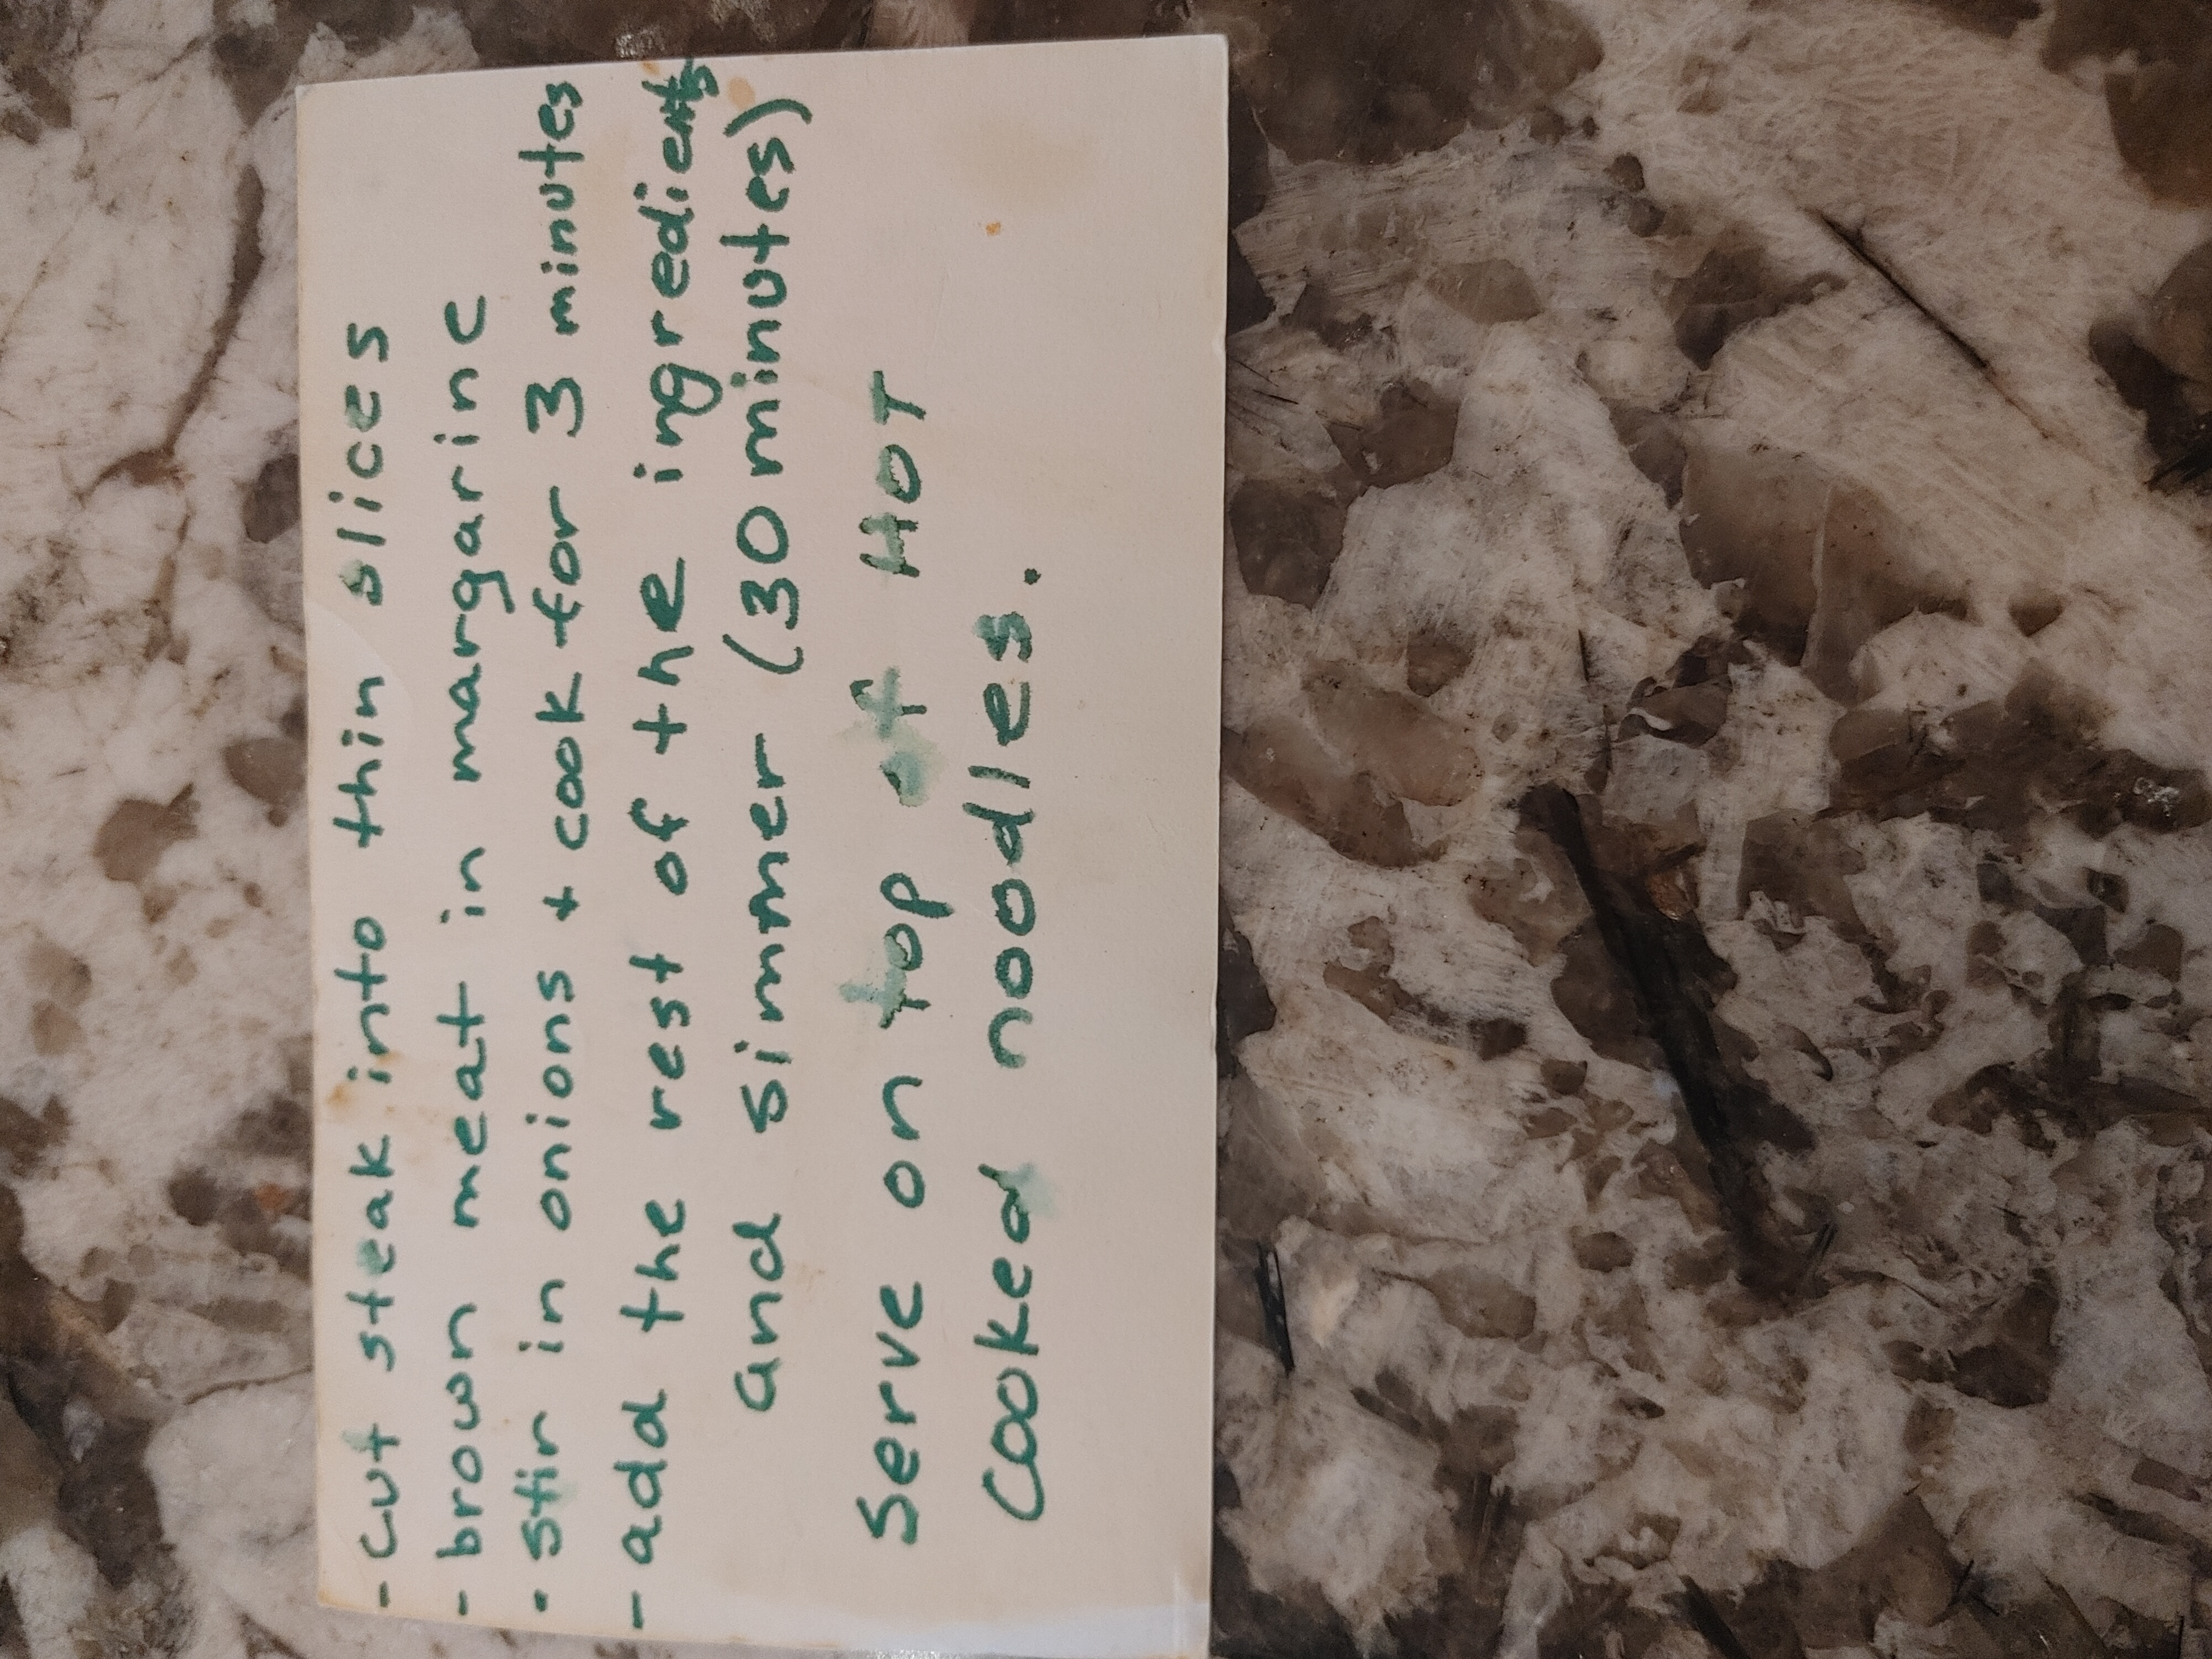 - cut steak into thin slices
- brown meat in margarine
- stir in onions + cook for 3 minutes
- add the rest of the ingredients
and simmer (30 minutes)
Serve on top of HOT
cooked noodles.